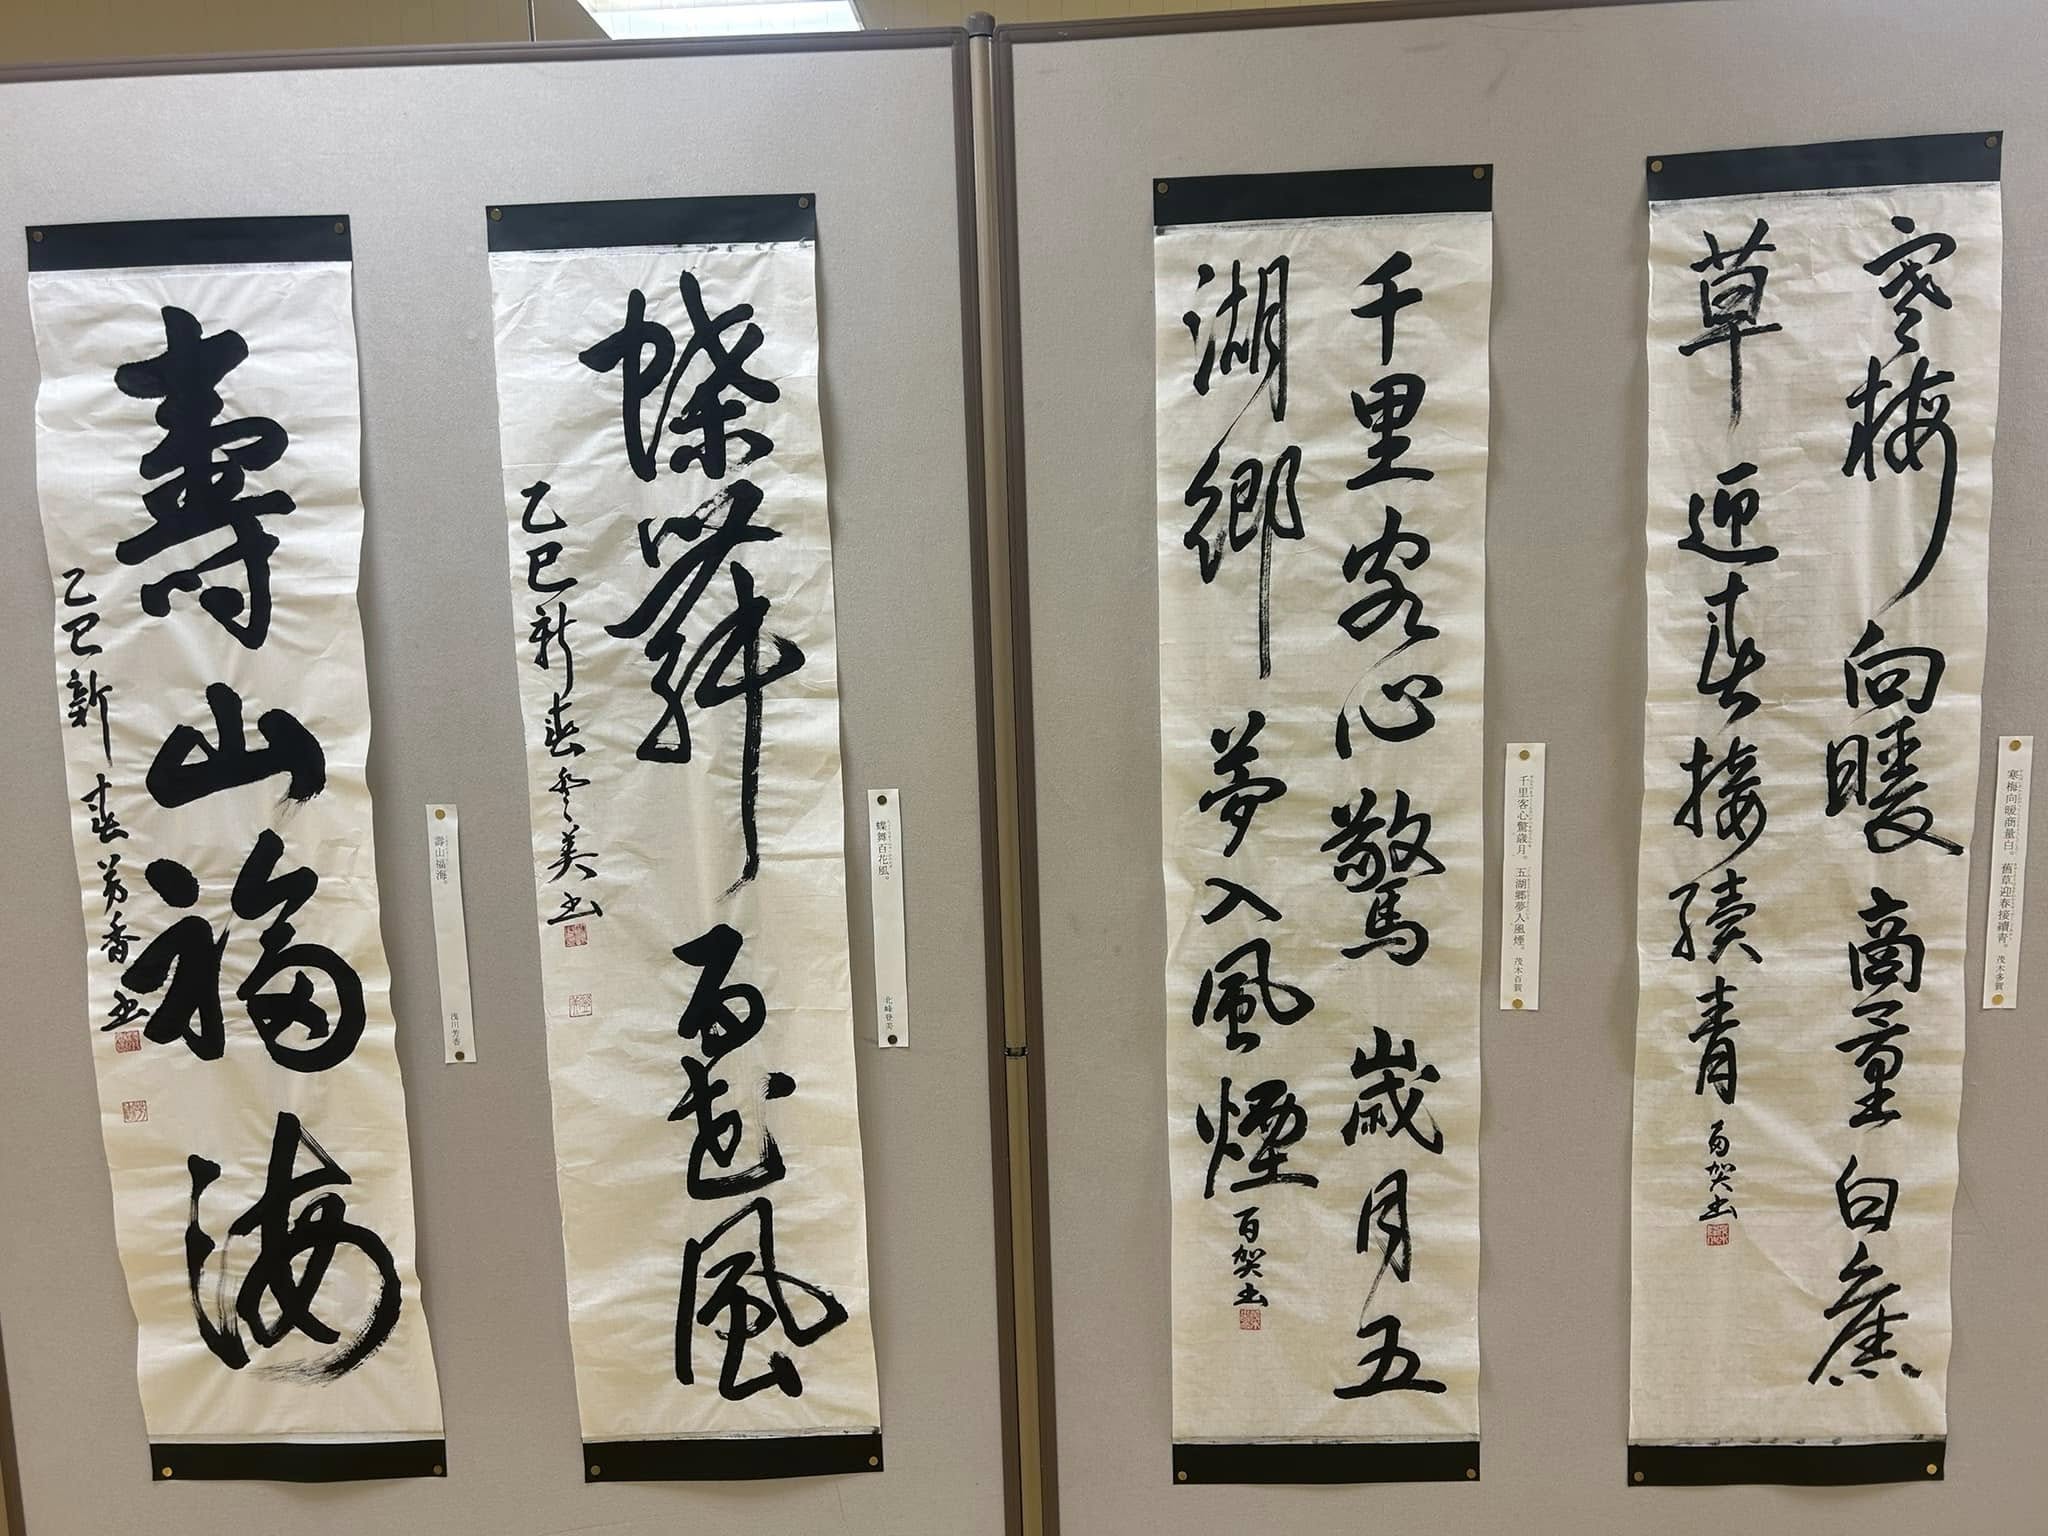 寒梅向暖商量白舊
草迎春接續青 百賀書
寒梅向暖商量白。舊草迎春接續青。 茂木百賀
千里客心驚歳月五
湖郷夢入風煙 百賀書
千里客心驚歳月。五湖郷夢入風煙。 茂木百賀
蝶舞百花風
乙巳新春登美書
蝶舞百花風。 北峰登美
壽山福海
乙巳新春芳香書
壽山福海。 浅川芳香